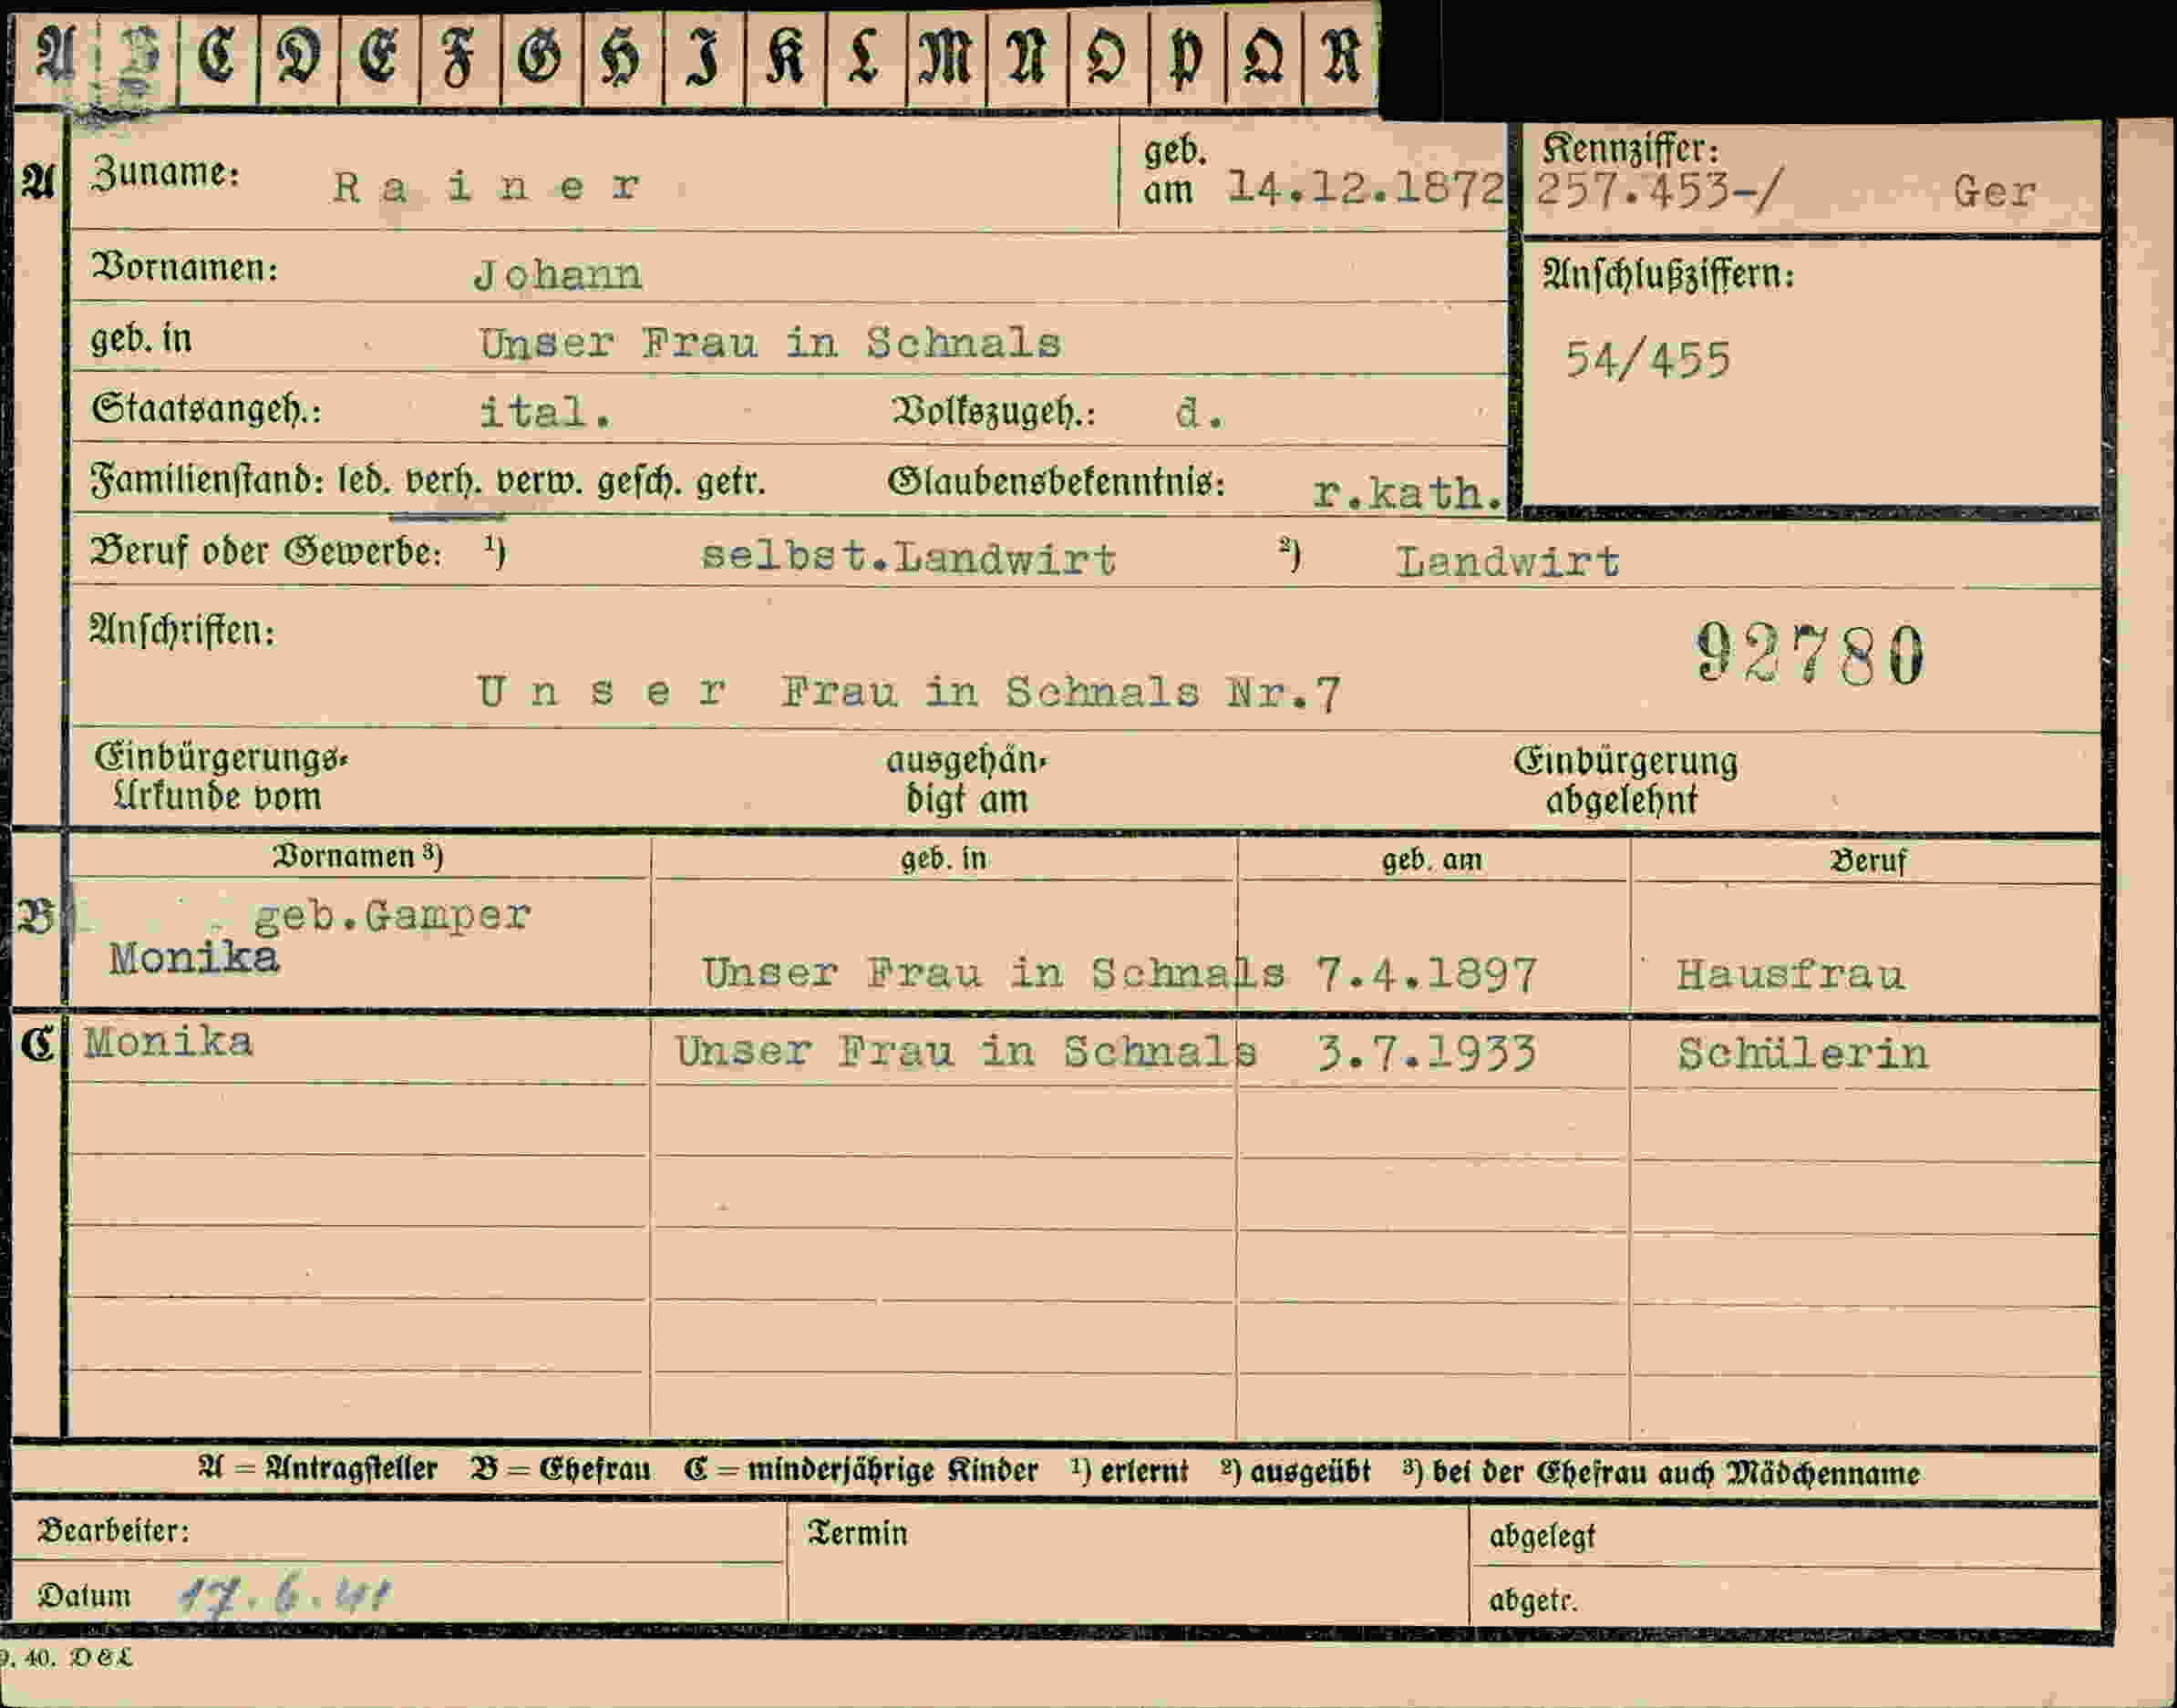 A B C D E F G H I K L M N O P Q R
A Zuname: Rainer geb. am 14.12.1872 Kennziffer: 257.453-/ Ger
Vornamen: Johann Anschlußziffern:
geb. in Unser Frau in Schnals 54/455
Staatsangeh.: ital. Volkszugeh.: d.
Familienstand: led. verh. verw. gesch. getr. Glaubensbekenntnis: r.kath.
Beruf oder Gewerbe: ¹) selbst.Landwirt ²) Landwirt
Anschriften: 92780
Unser Frau in Schnals Nr.7
Einbürgerungs- ausgehän- Einbürgerung
Urkunde vom digt am abgelehnt
Vornamen ³) geb. in geb. am Beruf
B geb.Gamper
Monika Unser Frau in Schnals 7.4.1897 Hausfrau
C Monika Unser Frau in Schnals 3.7.1933 Schülerin
A = Antragsteller B = Ehefrau C = minderjährige Kinder ¹) erlernt ²) ausgeübt ³) bei der Ehefrau auch Mädchenname
Bearbeiter: Termin abgelegt
Datum 17.6.41 abgetr.
9. 40. D & L